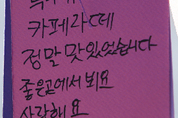 카페라떼
정말 맛있었습니다
좋은곳에서 뵈요
사랑해요